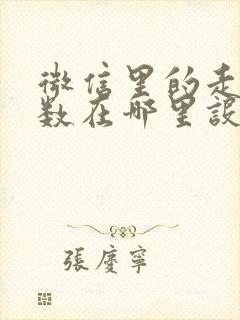 微信里的走
数在哪里設
張慶寧